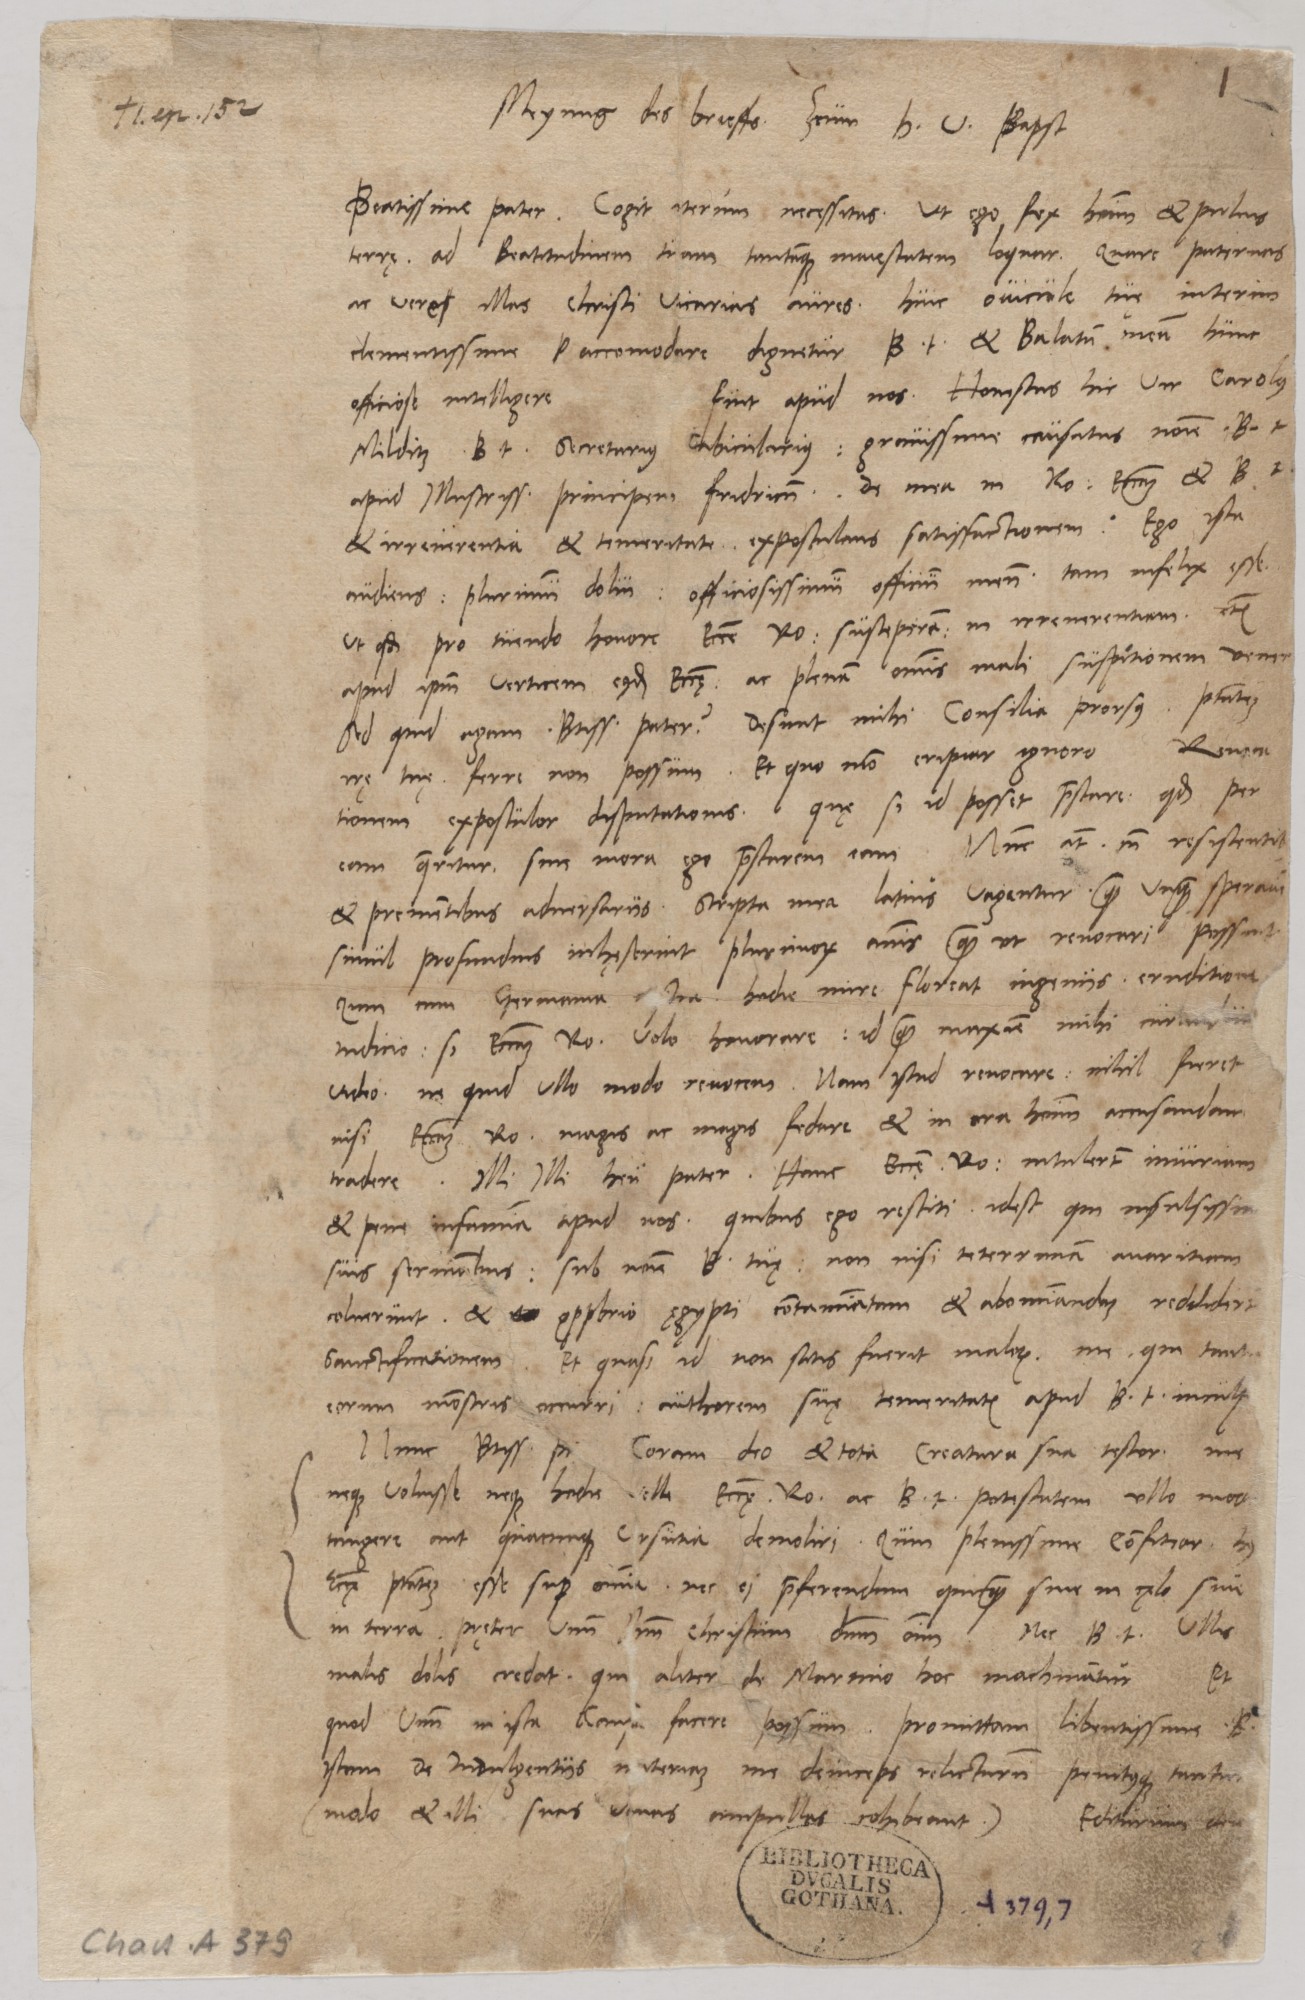 T1. ep. 152
1
Meynung des brieffs zum h. V. Bapst
Beatissime pater. Cogit iterum necessitas. Ut ego fex hoīm & puluis
terrę. ad Beatitudinem tuam tantāq; maiestatem loquar. Quare paternas
ac veras illas Christi Vicarias aures. huic ouicule tue interim
clementissime accomodare dignetur B. t. & Balatū meū hunc
officiose intelligere fuit apud nos. Honestus hic Vir Carolus
Milditz B t. Secretarius Cubicularius : grauissime causatus noīe B. t
apud Illustriss. principem fridricū. de mea in Ro: Eccam & B. t.
& irreuerentia & temeritate. expostulans satisfactionem : Ego ista
audiens : plurimū dolui : officiosissimū officiū meū tam infelix esse
Ut qd pro tuendo honore Eccē Ro: susceperā: in irreuerentiam. etiā
apud ipm verticem eiusd Eccę. ac plenā omīs mali suspitionem venerit
Sed quid agam. Btiss. pater? Desunt mihi Consilia prorsus. ptatē
irę tuę. ferre non possum. Et quo mō eripiar ignoro Reuoca
tionem expostulor disputationis. quę si id posset pstare. qd per
eam queritur. sine mora ego pstarem eam Nunc at. cū resistentib
& prementibus aduersariis. Scripta mea latius vagentur. quā unquā speraui
simul profundius inhęserint plurimorum aīmis quā ut reuocari possint
Quin cum Germania nostra hodie mire floreat ingeniis. eruditione
iudicio : si Eccam Ro. Volo honorare : id quā maxime mihi curandū
video. ne quid vllo modo reuocem. Nam istud reuocare. nihil fieret
nisi Eccam Ro. magis ac magis fedare & in ora hoīm accusandam
tradere. Illi Illi heu pater. Hanc Eccē. Ro: intulerūt iniuriam
& pene infamiā apud nos. quibus ego restiti. idest qui insulsissimis
suis sermonibus : sub noīe B. tuę : non nisi teterrimā auaritiam
coluerunt. & opprobrio ęgypti contaminatam & abominandā reddiderūt
Sanctificationem. Et quasi id non satis fuerit malorum. me. qui tantis
eorum mostris occurri : authorem suę temeritatis apud B. t. inculp
Nunc Btiss. pr Coram deo & tota Creatura sua testor. me
neq; voluisse neq; hodie velle Eccę. Ro. ac B. t. potestatem vllo modo
tangere aut quacunq; versutia demoliri. Quin plenissime Confiteor. hs
Eccę ptatē esse sup omnia. nec ei pferendum quicquā siue in cęlo siue
in terra. pręter Vnū Ihm Christum dnm oīm Nec B. t. vllis
malis dolis credat. qui aliter de Martino hoc machinātur Et
quod Vnū in ista causa facere possum. promittam libentissime. B.
istam de Indulgentiis materiam me deinceps relicturū penitusq; taciturū
(modo & illi suas vanas ampullas cohibeant.) Editurum
BIBLIOTHECA
DVCALIS
GOTHANA.
A 379,7
Chart. A 379